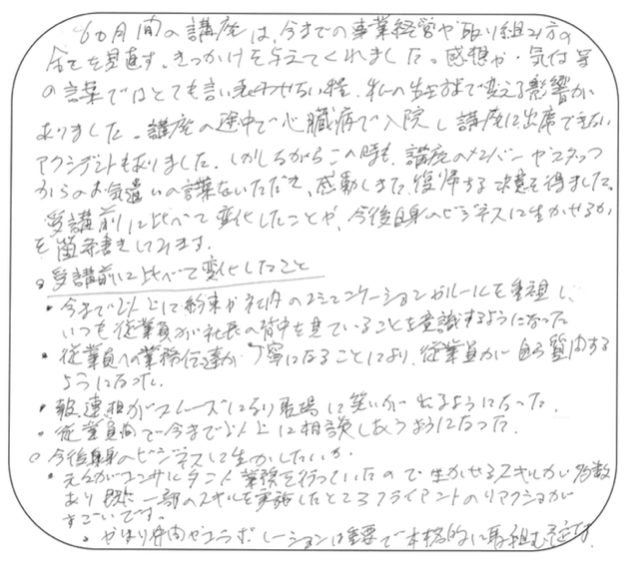 6ヵ月間の講座は、今までの事業経営や取り組み方の
全てを見直す、きっかけを与えてくれました。感想や・気付 等
の言葉ではとても言い表わせない程、私の生き方まで変える影響が
ありました。講座の途中で心臓病で入院し講座に出席できない
アクシデントもありました。しかしながらこの時も、講座のメンバーやスタッフ
からのお気遣いの言葉をいただき、感動しまた復帰する決意を得ました。
受講前に比べて変化したことや、今後自身のビジネスに生かせるか
を箇条書きしてみます。
○受講前に比べて変化したこと
・今まで以上に約束や社内のコミュニケーションやルールを重視し、
いつも従業員が社長の背中を見ていることを意識するようになった
・従業員への業務伝達が丁寧になることにより、従業員が自ら質問する
ようになった。
・報連相がスムーズになり現場に笑いが出るようになった。
・従業員間で今まで以上に相談しあうようになった。
○今後自身のビジネスに生かしたいか
・元々がコンサルタント業務を行っていたので生かせるスキルが多数
あり 既に一部のスキルを実施したところクライアントのリアクションが
すごいです。
・やはり コラボレーションは重要で本格的に取組む予定です